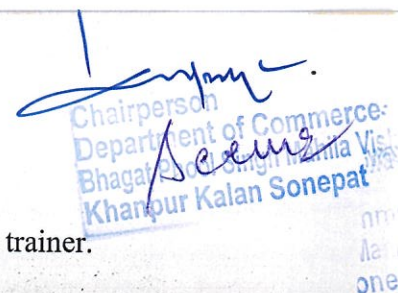 Chairperson
Department of Commerce
Bhagat Phool Singh Mahila Vis
Khanpur Kalan Sonepat
Seema
trainer.
one